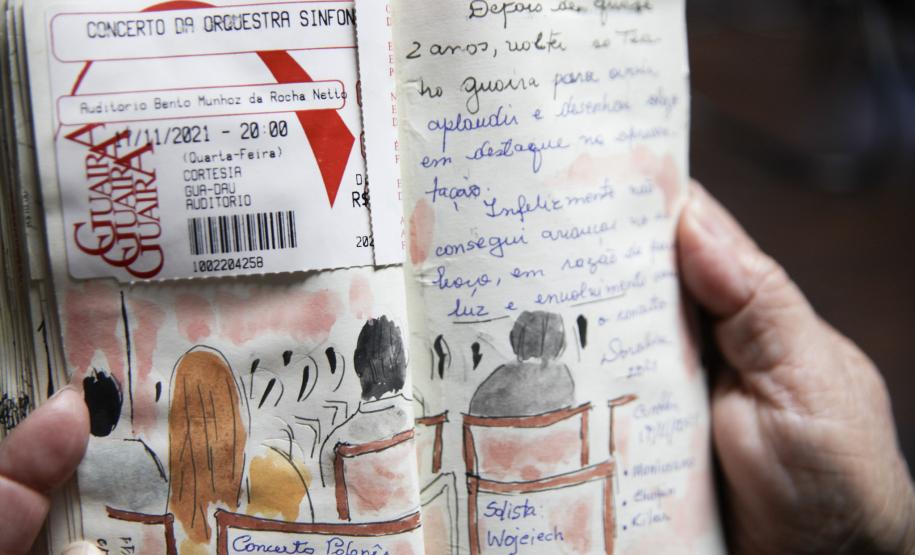 CONCERTO DA ORQUESTRA SINFON
Auditorio Bento Munhoz da Rocha Netto
17/11/2021 - 20:00
(Quarta-Feira)
CORTESIA
GUA-DAU
AUDITORIO
R$
202
1002204258
GUAIRA
GUAIRA
GUAIRA
Depois de quase
2 anos, voltei ao Tea
tro Guaira para
aplaudir e desenhar
em destaque na
tação. Infelizmente não
consegui avançar no
em razão da
luz e envolvimento
o concerto
17/11/2021
Chopin
Kilar
Solista:
Wojeciech
Concerto Polonês